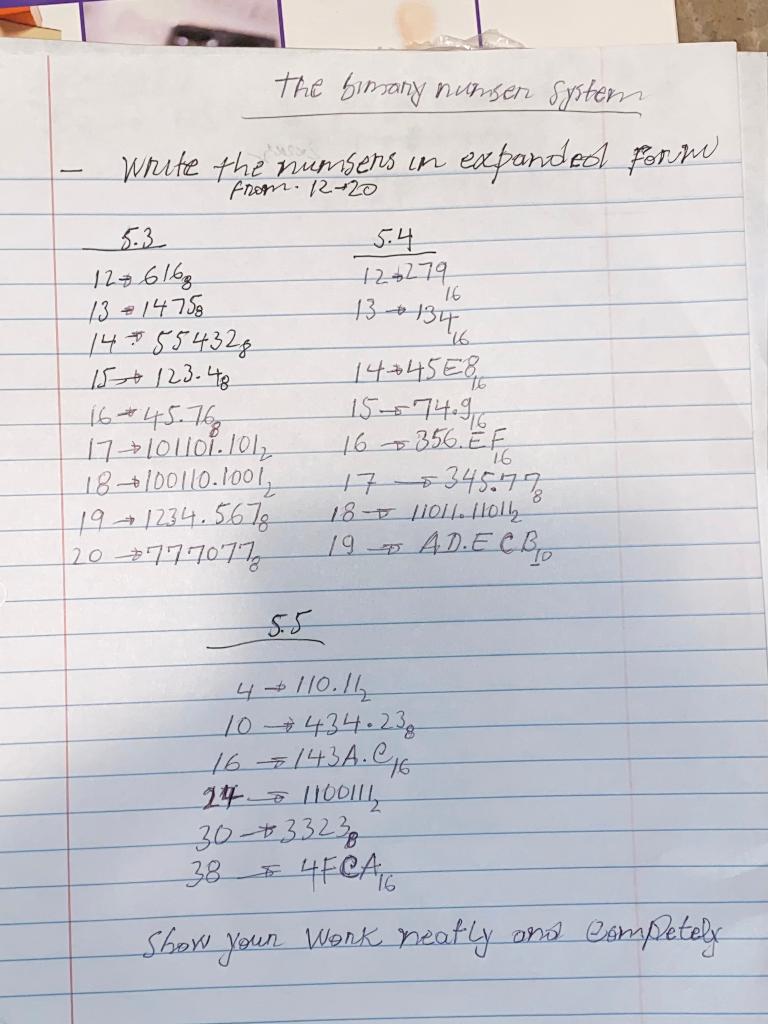 The binary number system
- Write the numbers in expanded form
from. 12→20
5.3
12→616₈
13→1475₈
14→55432₈
15→123.4₈
16→45.76₈
17→101101.101₂
18→100110.1001₂
19→1234.567₈
20→777077₈
5.4
12→279₁₆
13→134₁₆
14→45E8₁₆
15→74.9₁₆
16→356.EF₁₆
17→345.77₈
18→11011.11011₂
19→AD.ECB₁₀
5.5
4→110.11₂
10→434.23₈
16→143A.C₁₆
24→1100111₂
30→3323₈
38→4FCA₁₆
Show your work neatly and completely